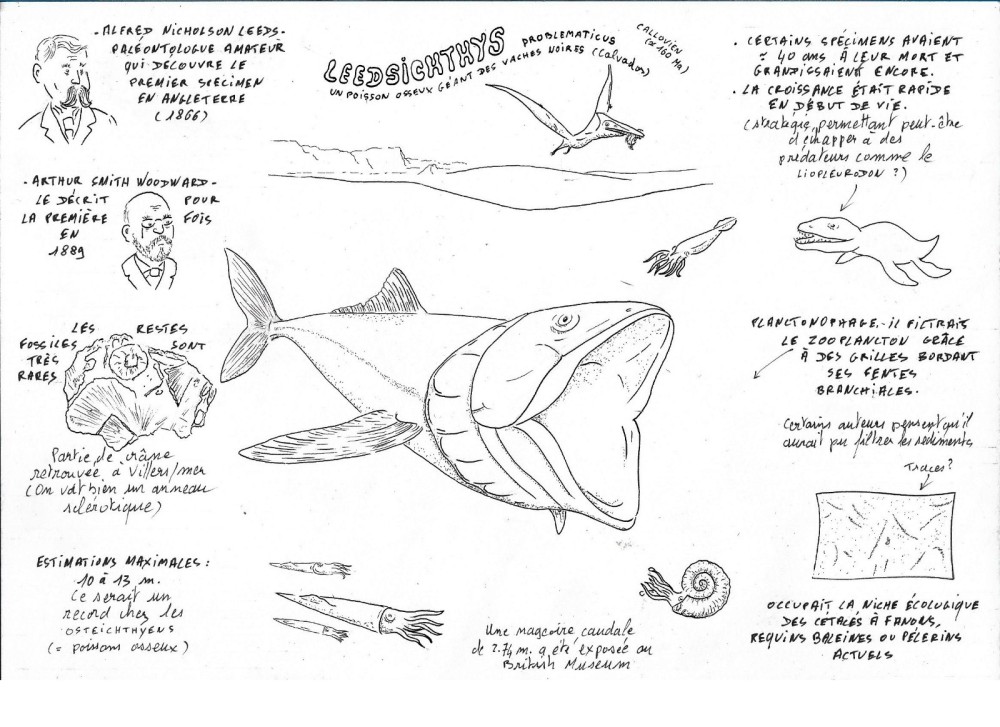 - ALFRED NICHOLSON LEEDS -
PALÉONTOLOGUE AMATEUR
QUI DÉCOUVRE LE
PREMIER SPÉCIMEN
EN ANGLETERRE
(1866)
LEEDSICHTHYS PROBLEMATICUS
UN POISSON OSSEUX GÉANT DES VACHES NOIRES (Calvados)
CALLOVIEN
(≈ 160 Ma)
. CERTAINS SPÉCIMENS AVAIENT
≈ 40 ans À LEUR MORT ET
GRANDISSAIENT ENCORE.
. LA CROISSANCE ÉTAIT RAPIDE
EN DÉBUT DE VIE.
(stratégie permettant peut-être
d'échapper à des
prédateurs comme le
LIOPLEURODON ?)
- ARTHUR SMITH WOODWARD -
LE DÉCRIT POUR
LA PREMIÈRE FOIS
EN
1889
LES RESTES
FOSSILES SONT
TRÈS
RARES
Partie de crâne
retrouvée à Villers/mer
(On voit bien un anneau
sclérotique)
PLANCTONOPHAGE - il FILTRAIT
LE ZOOPLANCTON GRÂCE
À DES GRILLES BORDANT
SES FENTES
BRANCHIALES.
Certains auteurs pensent qu'il
aurait pu filtrer les sédiments
Traces ?
ESTIMATIONS MAXIMALES :
10 à 13 m.
Ce serait un
record chez les
OSTEICHTHYENS
(= poissons osseux)
Une nageoire caudale
de 2.74 m. a été exposée au
British Museum
OCCUPAIT LA NICHE ÉCOLOGIQUE
DES CÉTACÉS À FANONS,
REQUINS BALEINES OU PÉLERINS
ACTUELS